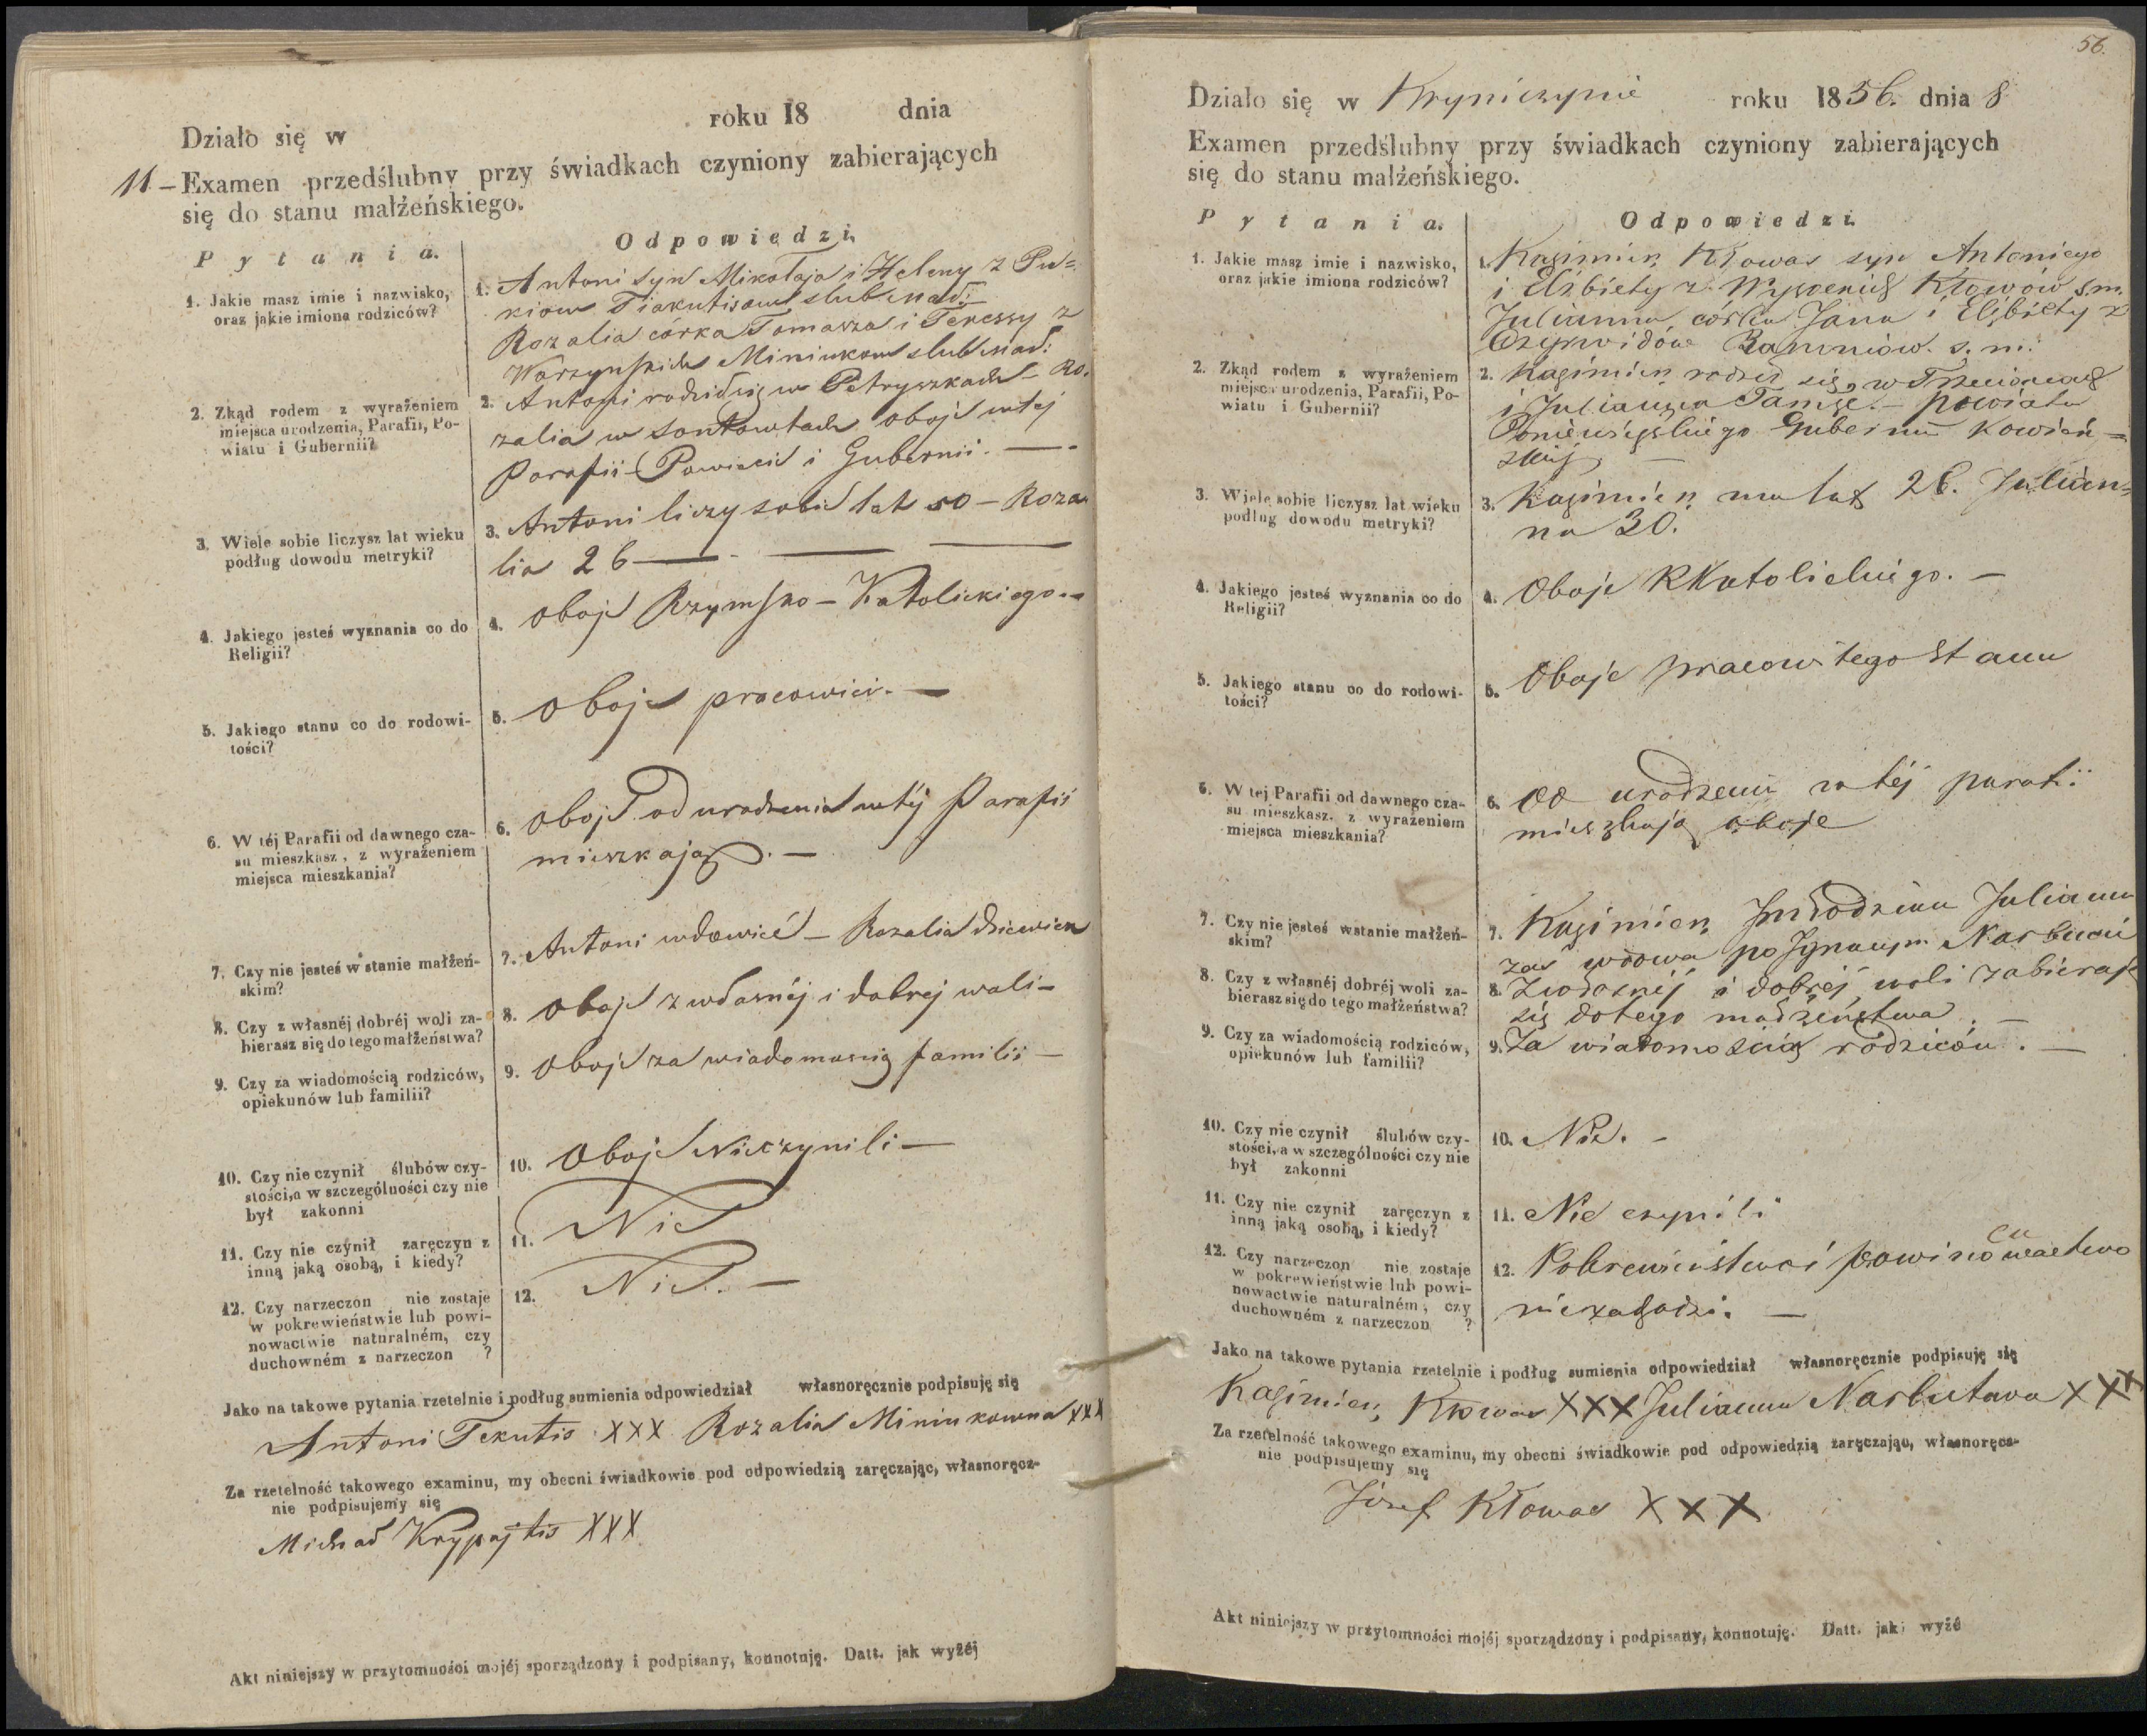 Działo się w roku 18 dnia
11 – Examen przedślubny przy świadkach czyniony zabierających
się do stanu małżeńskiego.
Pytania. Odpowiedzi.
1. Jakie masz imie i nazwisko,
oraz jakie imiona rodziców?
1. Antoni syn Mikołaja i Heleny z
Tiakutisow slub:
Rozalia córka Tomasza i Teressy z
Miniukow slub:
2. Zkąd rodem z wyrażeniem
miejsca urodzenia, Parafii, Po-
wiatu i Gubernii?
2. Antoni rodził się w Petryszkach – Ro-
zalia w oboje w tej
Parafii Powiecie i Gubernii. —
3. Wiele sobie liczysz lat wieku
podług dowodu metryki?
3. Antoni liczy sobie lat 50 – Roza-
lia 26 —
4. Jakiego jesteś wyznania co do
Religii?
4. Oboje Rzymsko – Katolickiego. –
5. Jakiego stanu co do rodowi-
tości?
5. Oboje pracowici. —
6. W téj Parafii od dawnego cza-
su mieszkasz, z wyrażeniem
miejsca mieszkania?
6. Oboje od urodzenia w téj Parafii
mieszkają. —
7. Czy nie jesteś w stanie małżeń-
skim?
7. Antoni wdowiec – Rozalia dziewica
8. Czy z własnéj dobréj woli za-
bierasz się do tego małżeństwa?
8. Oboje z własnéj i dobrej woli –
9. Czy za wiadomością rodziców,
opiekunów lub familii?
9. Oboje za wiadomością familii –
10. Czy nie czynił ślubów czy-
stości, a w szczególności czy nie
był zakonni
10. Oboje nieczynili —
11. Czy nie czynił zaręczyn z
inną jaką osobą, i kiedy?
11. Nie
12. Czy narzeczon nie zostaje
w pokrewieństwie lub powi-
nowactwie naturalném, czy
duchowném z narzeczon ?
12. Nie. —
Jako na takowe pytania rzetelnie i podług sumienia odpowiedział własnoręcznie podpisuję się
Antoni Tekutis XXX Rozalia Miniukowna XXX
Za rzetelność takowego examinu, my obecni świadkowie pod odpowiedzią zaręczając, własnoręcz-
nie podpisujemy się
Michał Krypajtis XXX
Akt niniejszy w przytomności mojéj sporządzony i podpisany, konnotuję. Datt. jak wyżéj
56.
Działo się w Kryniczynie roku 1856. dnia 8
Examen przedślubny przy świadkach czyniony zabierających
się do stanu małżeńskiego.
Pytania. Odpowiedzi.
1. Jakie masz imie i nazwisko,
oraz jakie imiona rodziców?
1. Kazimierz Kłowas syn Antoniego
i Elżbiety z Kłowów s.m.
Julianna córka Jana i Elżbiety z
s. m.
2. Zkąd rodem z wyrażeniem
miejsca urodzenia, Parafii, Po-
wiatu i Gubernii?
2. Kazimierz rodził się w
i Julianna Tamże. – powiatu
Poniewieżskiego Gubernii Kowień-
skiej
3. Wiele sobie liczysz lat wieku
podług dowodu metryki?
3. Kazimierz ma lat 26. Julian-
na 30.
4. Jakiego jesteś wyznania co do
Religii?
4. Oboje RKatolickiego. –
5. Jakiego stanu co do rodowi-
tości?
5. Oboje pracowitego stanu
6. W tej Parafii od dawnego cza-
su mieszkasz, z wyrażeniem
miejsca mieszkania?
6. Od urodzenia w téj parafii
mieszkają oboje
7. Czy nie jesteś w stanie małżeń-
skim?
7. Kazimierz młodzian Julianna
zaś wdowa po
8. Czy z własnéj dobréj woli za-
bierasz się do tego małżeństwa?
8. Z własnéj i dobréj woli zabierają
się do tego małżeństwa. —
9. Czy za wiadomością rodziców,
opiekunów lub familii?
9. Za wiadomością rodziców. —
10. Czy nie czynił ślubów czy-
stości, a w szczególności czy nie
był zakonni
10. Nie. –
11. Czy nie czynił zaręczyn z
inną jaką osobą, i kiedy?
11. Nie czynili
12. Czy narzeczon nie zostaje
w pokrewieństwie lub powi-
nowactwie naturalném, czy
duchowném z narzeczon ?
12. Pokrewieństwo i
niezachodzi. —
Jako na takowe pytania rzetelnie i podług sumienia odpowiedział własnoręcznie podpisuję się
Kazimierz Kłowas XXX Julianna Narbutowa XXX
Za rzetelność takowego examinu, my obecni świadkowie pod odpowiedzią zaręczając, własnoręcz-
nie podpisujemy się
Józef Kłowas XXX
Akt niniejszy w przytomności mojéj sporządzony i podpisany, konnotuję. Datt. jak wyżé